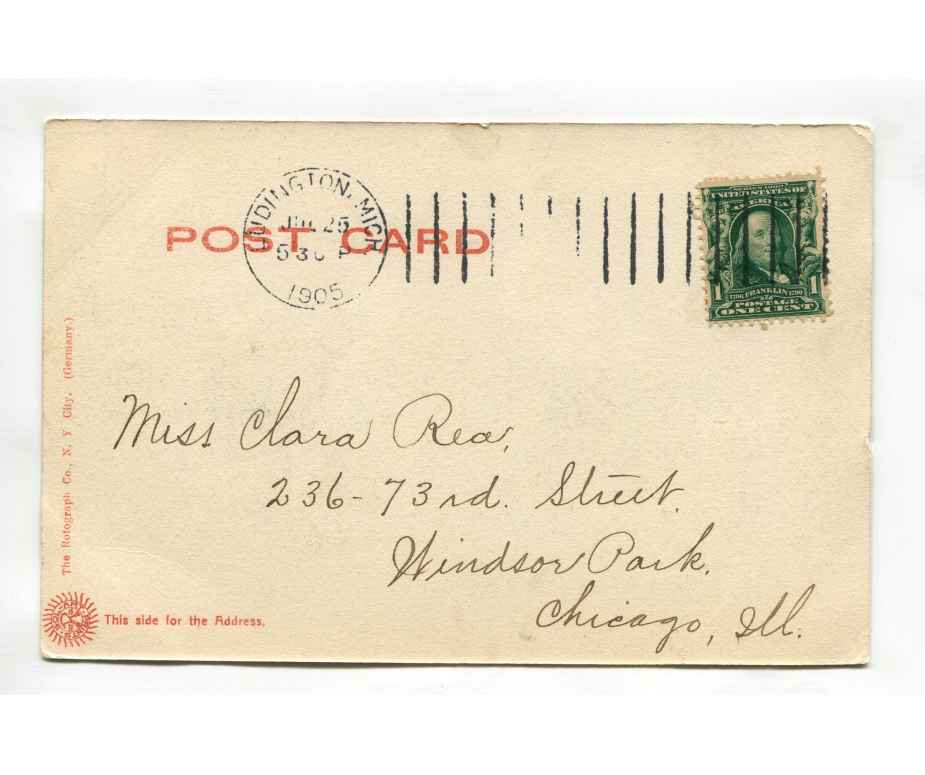 LUDINGTON, MICH
JUL 25
530 P
1905
POST CARD
SERIES 1902
UNITED STATES OF
AMERICA
1 1706 FRANKLIN 1790 1
POSTAGE
ONE CENT
Miss Clara Rea,
236-73rd. Street.
Windsor Park.
Chicago, Ill.
The Rotograph Co., N. Y City. (Germany.)
This side for the Address.